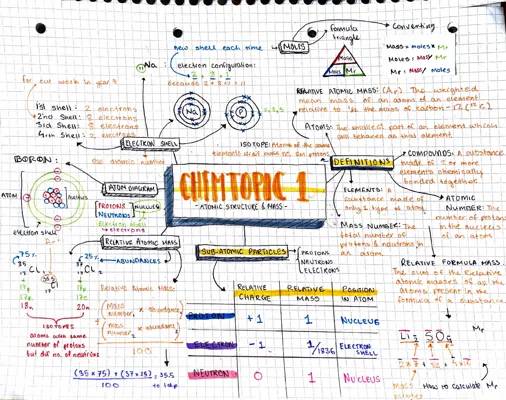 formula
triangle
Converting
new shell each time
MOLES
MASS = moles x Mr
Moles = mass / Mr
Mr = mass / moles
Mole
Mass
Mr
Na:
electron configuration:
For our work in year 9
1st shell: 2 electrons
2nd shell: 8 electrons
3rd shell: 8 electrons
4th shell:
ELECTRON SHELL
Na
use atomic number
RELATIVE ATOMIC MASS: (Ar) The weighted
mean mass of an atom of an element
relative to the mass of carbon-12
ATOMS: The smallest part of an element which
will behave as that element
ISOTOPE: Atoms of the same
DEFINITIONS
COMPOUNDS: A substance
made of 2 or more
elements chemically
bonded together
BORON:
ATOM
nucleus
electron shell
ATOM DIAGRAM
PROTONS
NEUTRONS
nucleus
electrons
CHEM TOPIC 1
- ATOMIC STRUCTURE & MASS -
ELEMENTS: A
substance made of
only 1 type of atom
ATOMIC
NUMBER: The
number of protons
in the nucleus
of an atom
MASS NUMBER: The
total number of
protons & neutrons in
an atom
RELATIVE ATOMIC MASS
75%
25%
ABUNDANCES
35
Cl
37
Cl
35.5
Cl
17p
17p
17e
17e
18n
20n
ISOTOPES
atoms with same
number of protons
but dif no. of neutrons
RELATIVE ATOMIC MASS:
(mass number x abundance)
+ (mass number x abundance)
100
(35 x 75) + (37 x 25) = 35.5
100
to 1dp
SUB-ATOMIC PARTICLES
PROTONS
NEUTRONS
ELECTRONS
RELATIVE CHARGE
RELATIVE MASS
POSITION IN ATOM
PROTON
+1
1
NUCLEUS
ELECTRON
-1
1/1836
ELECTRON SHELL
NEUTRON
0
1
NUCLEUS
RELATIVE FORMULA MASS:
The sum of the relative
atomic masses of all the
atoms present in the
formula of a substance
Mr
How to calculate Mr